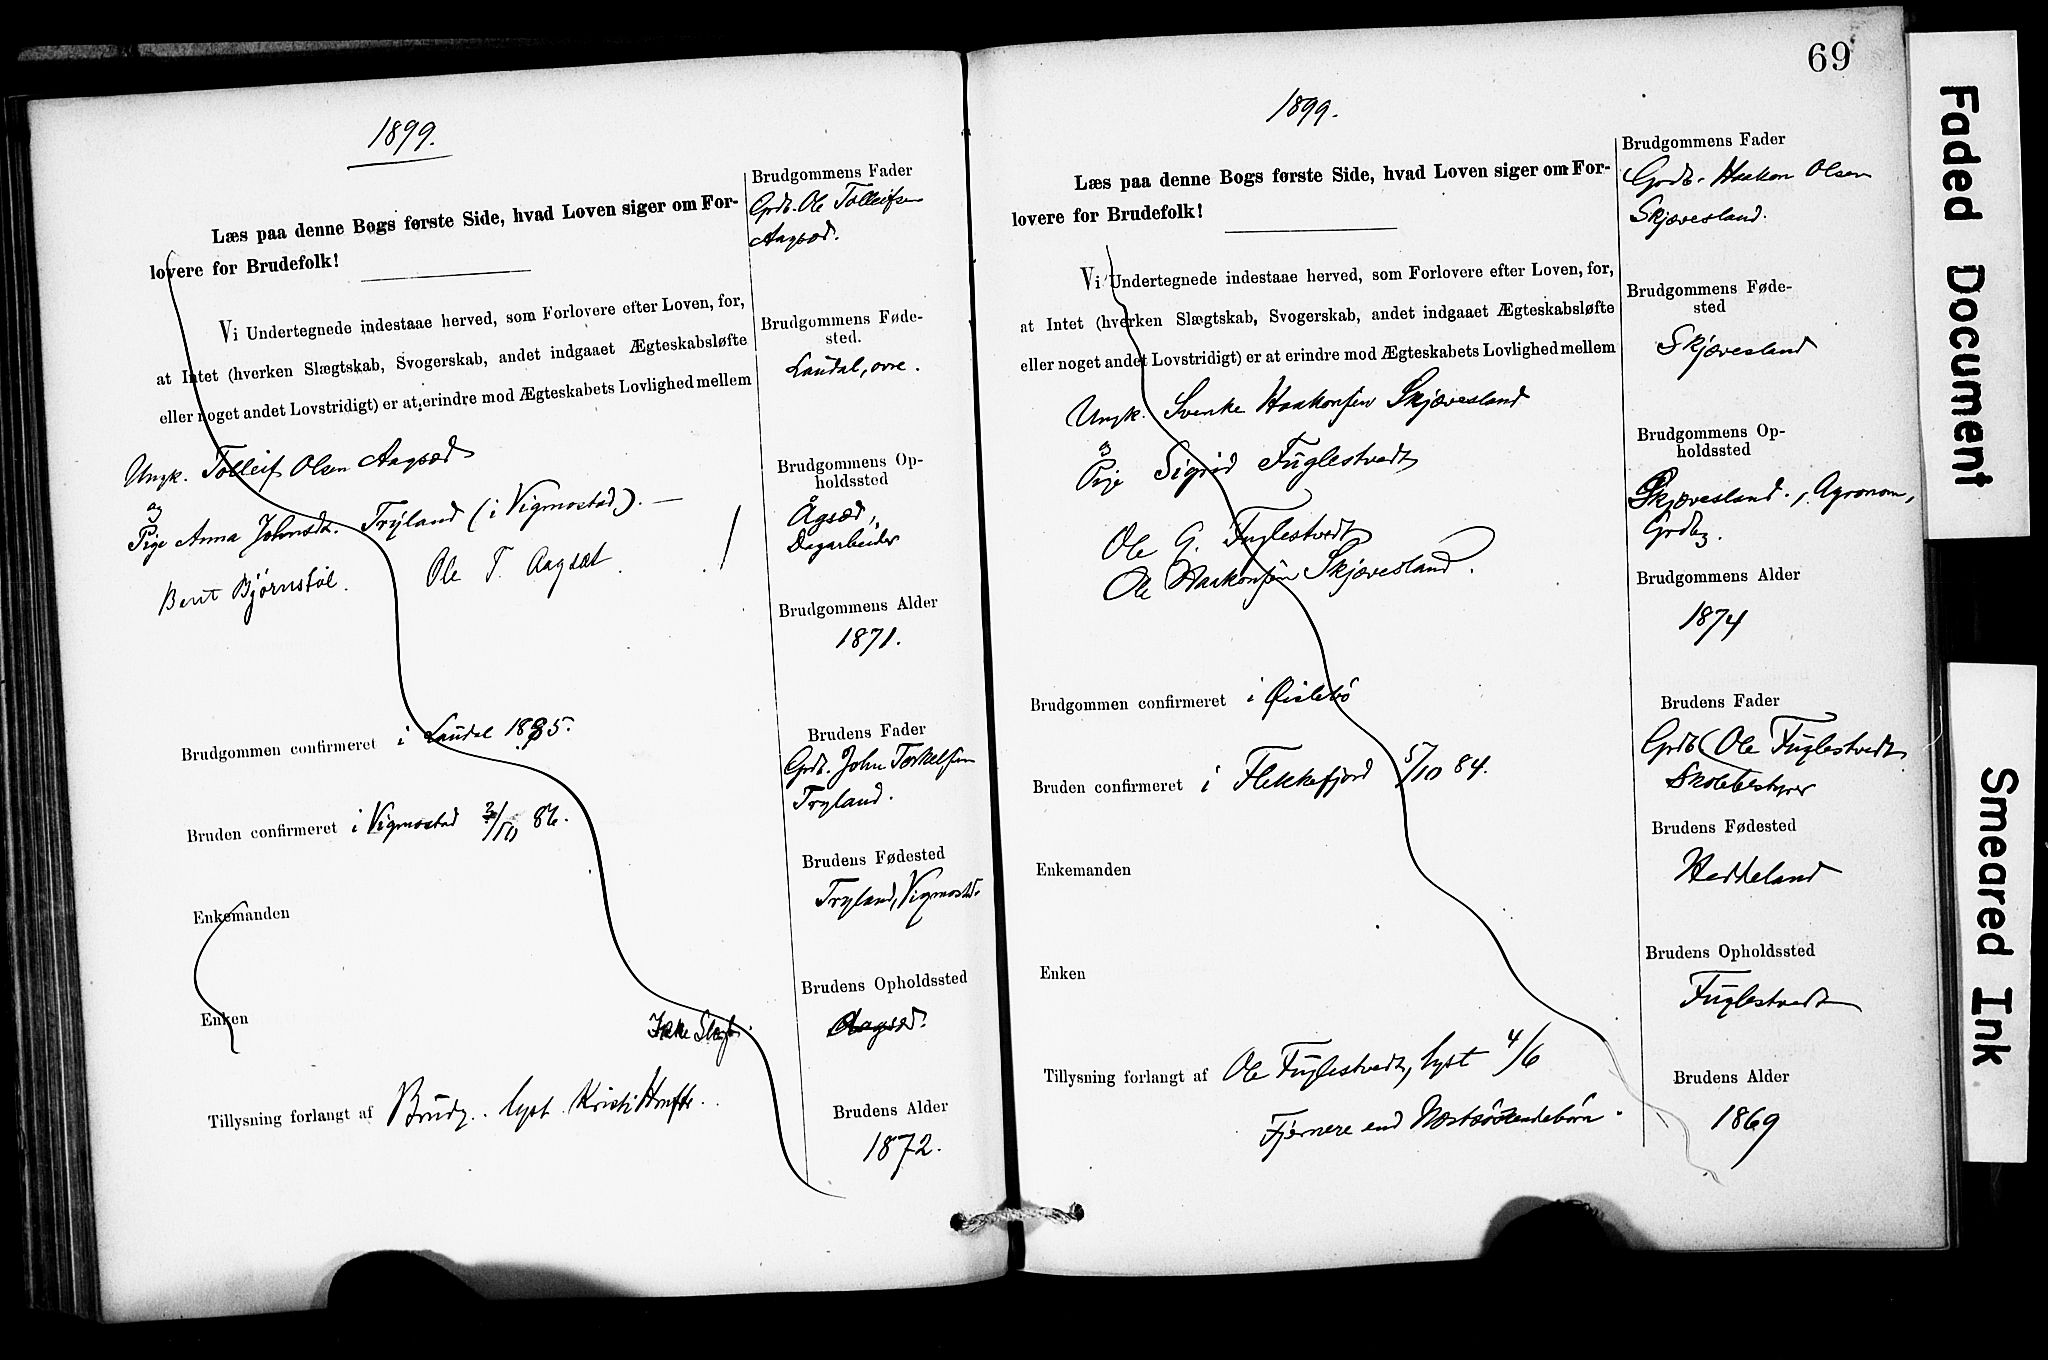 1899.
Læs paa denne Bogs første Side, hvad Loven siger om For-
lovere for Brudefolk!
Vi Undertegnede indestaae herved, som Forlovere efter Loven, for,
at Intet (hverken Slægtskab, Svogerskab, andet indgaaet Ægteskabsløfte
eller noget andet Lovstridigt) er at erindre mod Ægteskabets Lovlighed mellem
Ungk. Tolleif Olsen Aagsæd
og
Pige Anna Johnsdt. Tryland (i Vigmostad). —
Bent Bjørnstøl. Ole T. Aagsæt.
Brudgommen confirmeret i Laudal 1885.
Bruden confirmeret i Vigmostad 3/10 86.
Enkemanden
Enken
Ikke Slægt.
Tillysning forlangt af Brudg. lyst Kristi Hmftr.
Brudgommens Fader
Grdb. Ole Tolleifsen
Aagsæd.
Brudgommens Føde-
sted.
Laudal, øvre.
Brudgommens Op-
holdssted
Ågsæd,
Dagarbeider
Brudgommens Alder
1871.
Brudens Fader
Grdb. John Torkelsen
Tryland.
Brudens Fødested
Tryland, Vigmostad.
Brudens Opholdssted
Aagsæd.
Brudens Alder
1872.
69
1899.
Læs paa denne Bogs første Side, hvad Loven siger om For-
lovere for Brudefolk!
Vi Undertegnede indestaae herved, som Forlovere efter Loven, for,
at Intet (hverken Slægtskab, Svogerskab, andet indgaaet Ægteskabsløfte
eller noget andet Lovstridigt) er at erindre mod Ægteskabets Lovlighed mellem
Ungk. Svenke Haakonsen Skjævesland
og
Pige Sigrid Fuglestvedt
Ole G. Fuglestvedt
Ole Haakonsen Skjævesland.
Brudgommen confirmeret i Øislebø
Bruden confirmeret i Flekkefjord 5/10 84.
Enkemanden
Enken
Tillysning forlangt af Ole Fuglestvedt, lyst 4/6
Fjernere end Næstsødskendebørn.
Brudgommens Fader
Grdb. Haakon Olsen
Skjævesland.
Brudgommens Føde-
sted
Skjævesland
Brudgommens Op-
holdssted
Skjævesland., Agronom,
Grdbg.
Brudgommens Alder
1874
Brudens Fader
Grdb Ole Fuglestvedt
Skolebestyrer
Brudens Fødested
Heddeland
Brudens Opholdssted
Fuglestvedt
Brudens Alder
1869
Faded Document
Smeared Ink